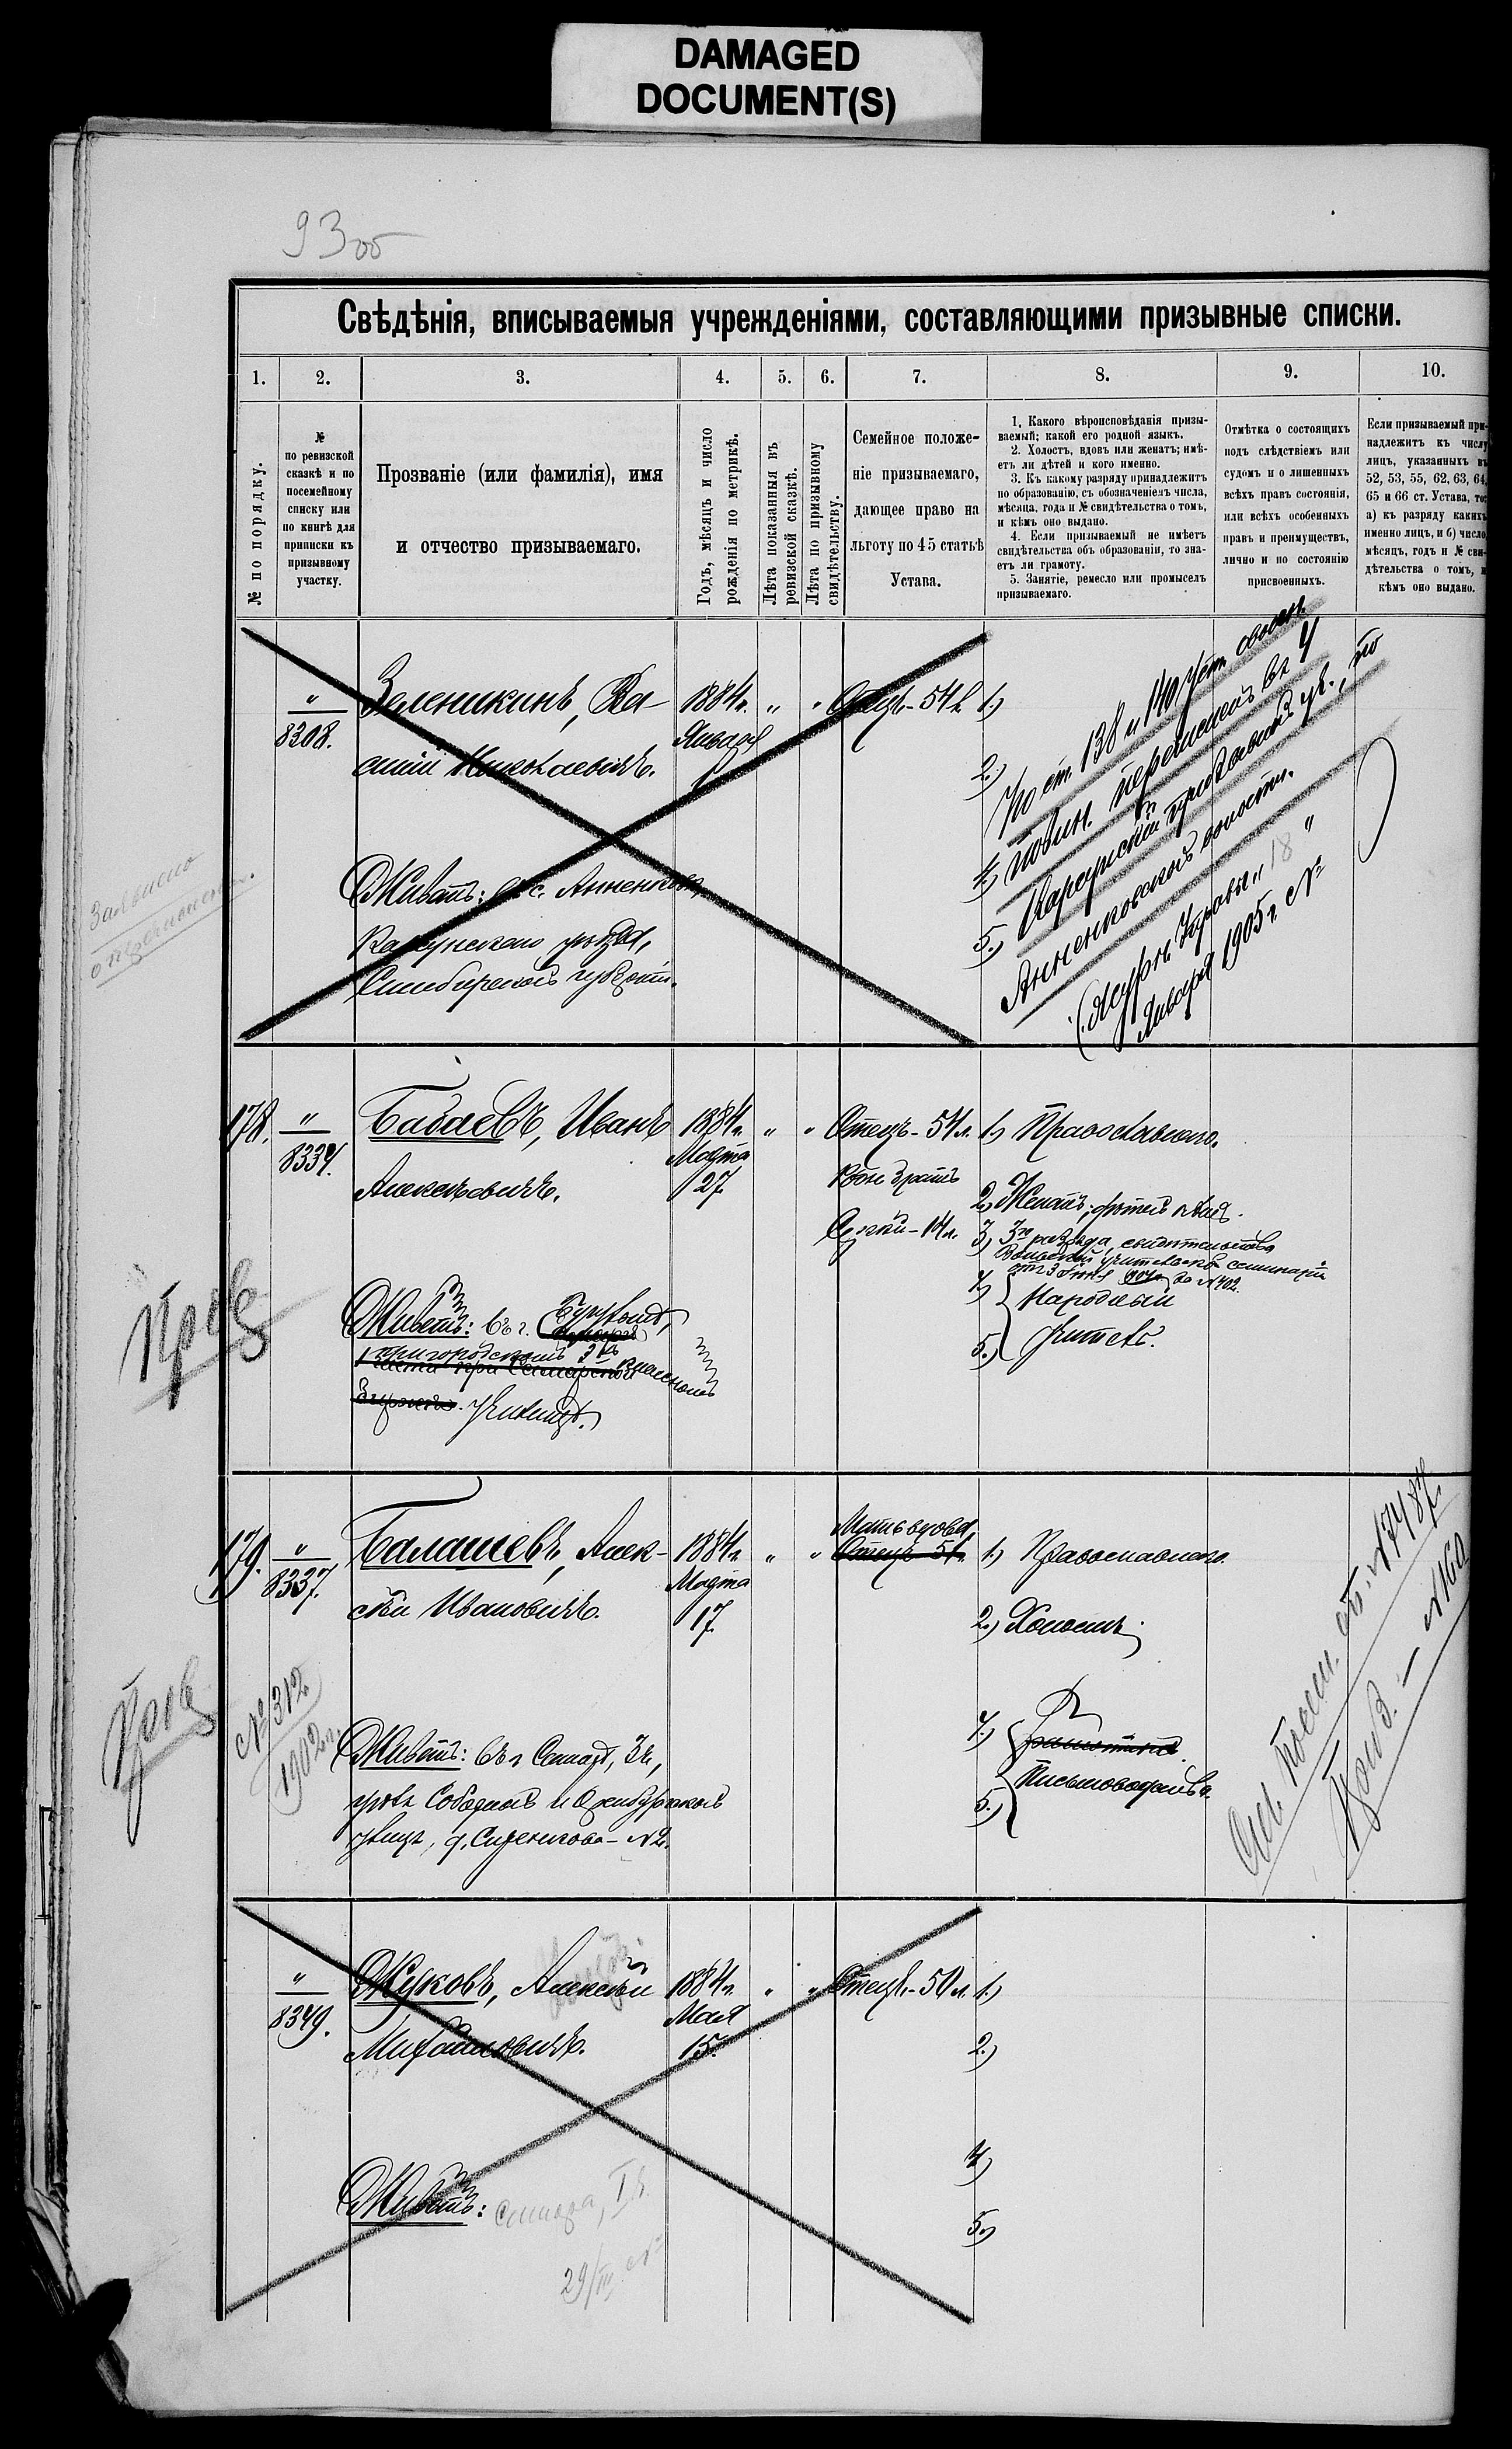 DAMAGED
DOCUMENT(S)
93 об
Свѣдѣнія, вписываемыя учрежденіями, составляющими призывные списки.
1. 2. 3. 4. 5. 6. 7. 8. 9. 10.
№ по порядку.
№
по ревизской
сказкѣ и по
посемейному
списку или
по книгѣ для
приписки къ
призывному
участку.
Прозваніе (или фамилія), имя
и отчество призываемаго.
Годъ, мѣсяцъ и число
рожденія по метрикѣ.
Лѣта показанныя въ
ревизской сказкѣ.
Лѣта по призывному
свидѣтельству.
Семейное положе-
ніе призываемаго,
дающее право на
льготу по 45 статьѣ
Устава.
1. Какого вѣроисповѣданія призы-
ваемый; какой его родной языкъ.
2. Холостъ, вдовъ или женатъ; имѣ-
етъ ли дѣтей и кого именно.
3. Къ какому разряду принадлежитъ
по образованію, съ обозначеніемъ числа,
мѣсяца, года и № свидѣтельства о томъ,
и кѣмъ оно выдано.
4. Если призываемый не имѣетъ
свидѣтельства объ образованіи, то зна-
етъ ли грамоту.
5. Занятіе, ремесло или промыселъ
призываемаго.
Отмѣтка о состоящихъ
подъ слѣдствіемъ или
судомъ и о лишенныхъ
всѣхъ правъ состоянія,
или всѣхъ особенныхъ
правъ и преимуществъ,
лично и по состоянію
присвоенныхъ.
Если призываемый при-
надлежитъ къ числу
лицъ, указанныхъ въ
52, 53, 55, 62, 63, 64,
65 и 66 ст. Устава, то:
а) къ разряду какихъ
именно лицъ, и б) число,
мѣсяцъ, годъ и № сви-
дѣтельства о томъ, и
кѣмъ оно выдано.
"
8308.
Зеленикинъ, Ва-
силій Николаевичъ.
1884 г.
Января
1
" "
Отецъ - 54 л.
1.)
2.)
4.)
5.)
По ст. 138 и 140 Уст. о воен.
повин. перешелъ въ 4
Карсунскій призывной уч., по
Анненковской волости.
(Журн. Управы „18"
Января 1905 г. №
Живетъ: въ с. Анненково,
Карсунскаго уѣзда,
Симбирской губерніи.
Заявлено
о перечислен.
178.
"
8334.
Бабаевъ, Иванъ
Алексѣевичъ.
1884 г.
Марта
27
" "
Отецъ - 54 л.
Братъ
14 л.
1.) Православнаго.
2.) Женатъ; дѣтей нѣтъ.
3.) 3го разряда, свидѣтельство
Вольской учительской семинаріи
от 3 Іюня 1904 г. за № 402.
4.) Народный
5.) учитель.
Живетъ: въ г.
пригородскомъ 2 кл
классномъ
училищѣ.
Пров
179.
"
8337.
Балашевъ, Алек-
сѣй Ивановичъ.
1884 г.
Марта
17
" "
Мать вдова
Отецъ 51 л.
1.) Православнаго.
2.) Холостъ.
4.) грамотный
5.) Письмоводитель.
№ 312
1902 г.
Живетъ: въ г. Самарѣ, 3 ч.,
уголъ Соборной и Симбирской
улицъ, д. Сиренчова - № 2.
Пров
№ 17487
№ 160
"
8349.
Жуковъ, Алексѣй
Михайловичъ.
1884 г.
Мая
15.
" "
Отецъ - 50 л.
1.)
2.)
4.)
5.)
Живетъ: Самара, I ч.
29/III №